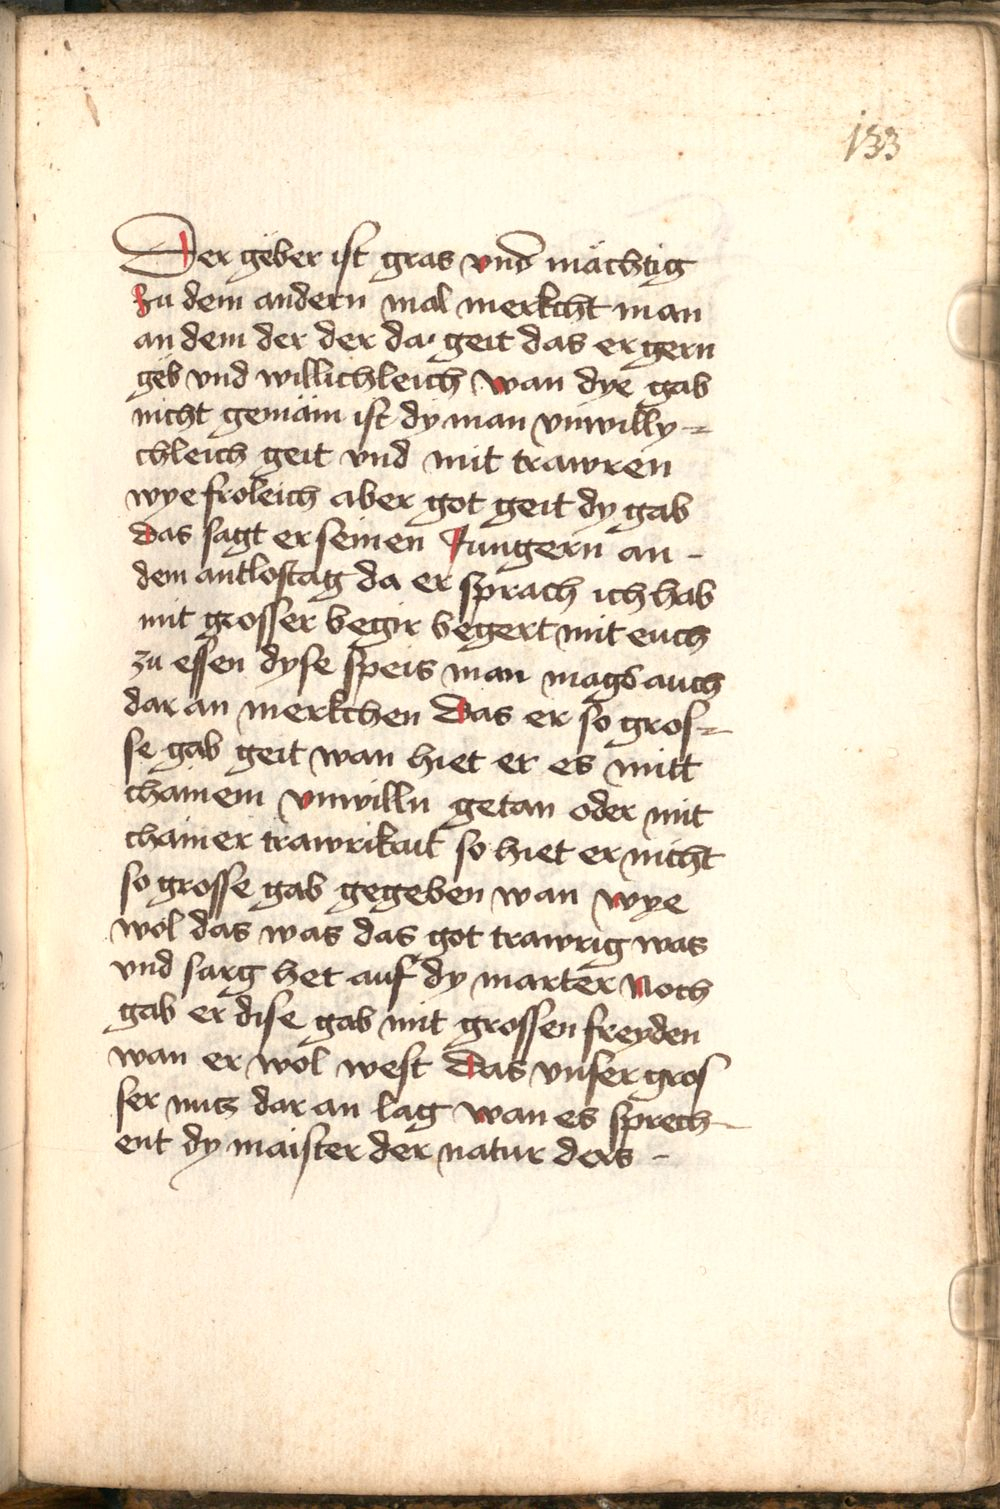 133
Der geber ist gras vnd mächtig
Zu dem andern mal merkcht man
an dem der der da geit das er gern
geb vnd willichleich wan dye gab
nicht genäm ist dy man vnwilly=
chleich geit vnd mit trawren
wye froleich aber got geit dy gab
das sagt er seinen Jungern an -
dem antlostag da er sprach ich hab
mit grosser begir begert mit euch
zu essen dyse speis man mags auch
dar an merkchen Das er so gros=
se gab geit wan hiet er es mitt
chainem vnwilln getan oder mit
chainer trawrikait so hiet er nicht
so grosse gab gegeben wan wye
wol das was das got trawrig was
vnd sarg het auf dy marter Noch
gab er dise gab mit grossen freyden
wan er wol west Das vnser gros
ser nutz dar an lag wan es sprech-
ent dy maister der natur ders -